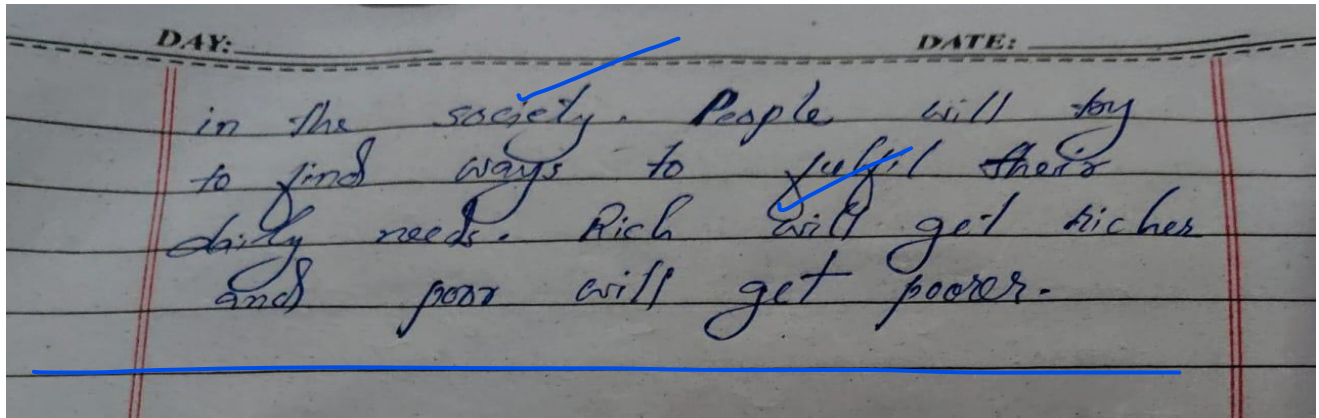 DAY: DATE:
in the society. People will try
to find ways to fulfil their
daily needs. Rich will get richer
and poor will get poorer.